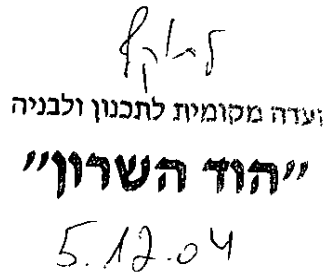 לתוקף
ועדה מקומית לתכנון ולבניה
"הוד השרון"
5.12.04